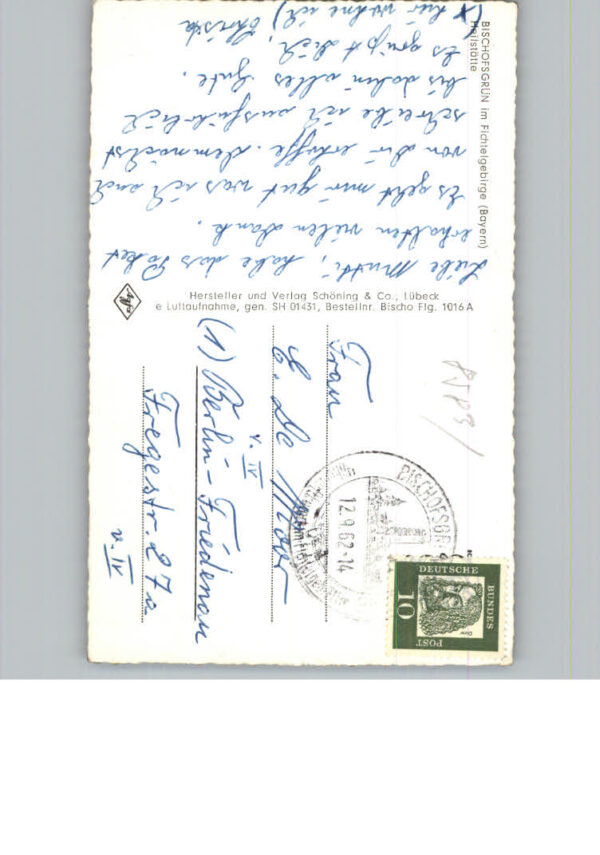 BISCHOFSGRÜN im Fichtelgebirge (Bayern)
Heilstätte
Liebe Mutti, habe das Paket
erhalten vielen Dank.
Es geht mir gut was ich auch
von dir erhoffe. Demnächst
schreibe ich ausführlich
bis dahin alles Gute.
Es grüßt dich,
(x hier wohne ich)
Hersteller und Verlag Schöning & Co., Lübeck
e Luftaufnahme, gen. SH 01431, Bestellnr. Bischo Flg. 1016 A
BISCHOFSGRÜN
12.9.62-14
DEUTSCHE
BUNDES
POST
10
Frau
E. De
(1) Berlin-Friedenau
Fregestr. 27a
v. IV
v. IV
8583/